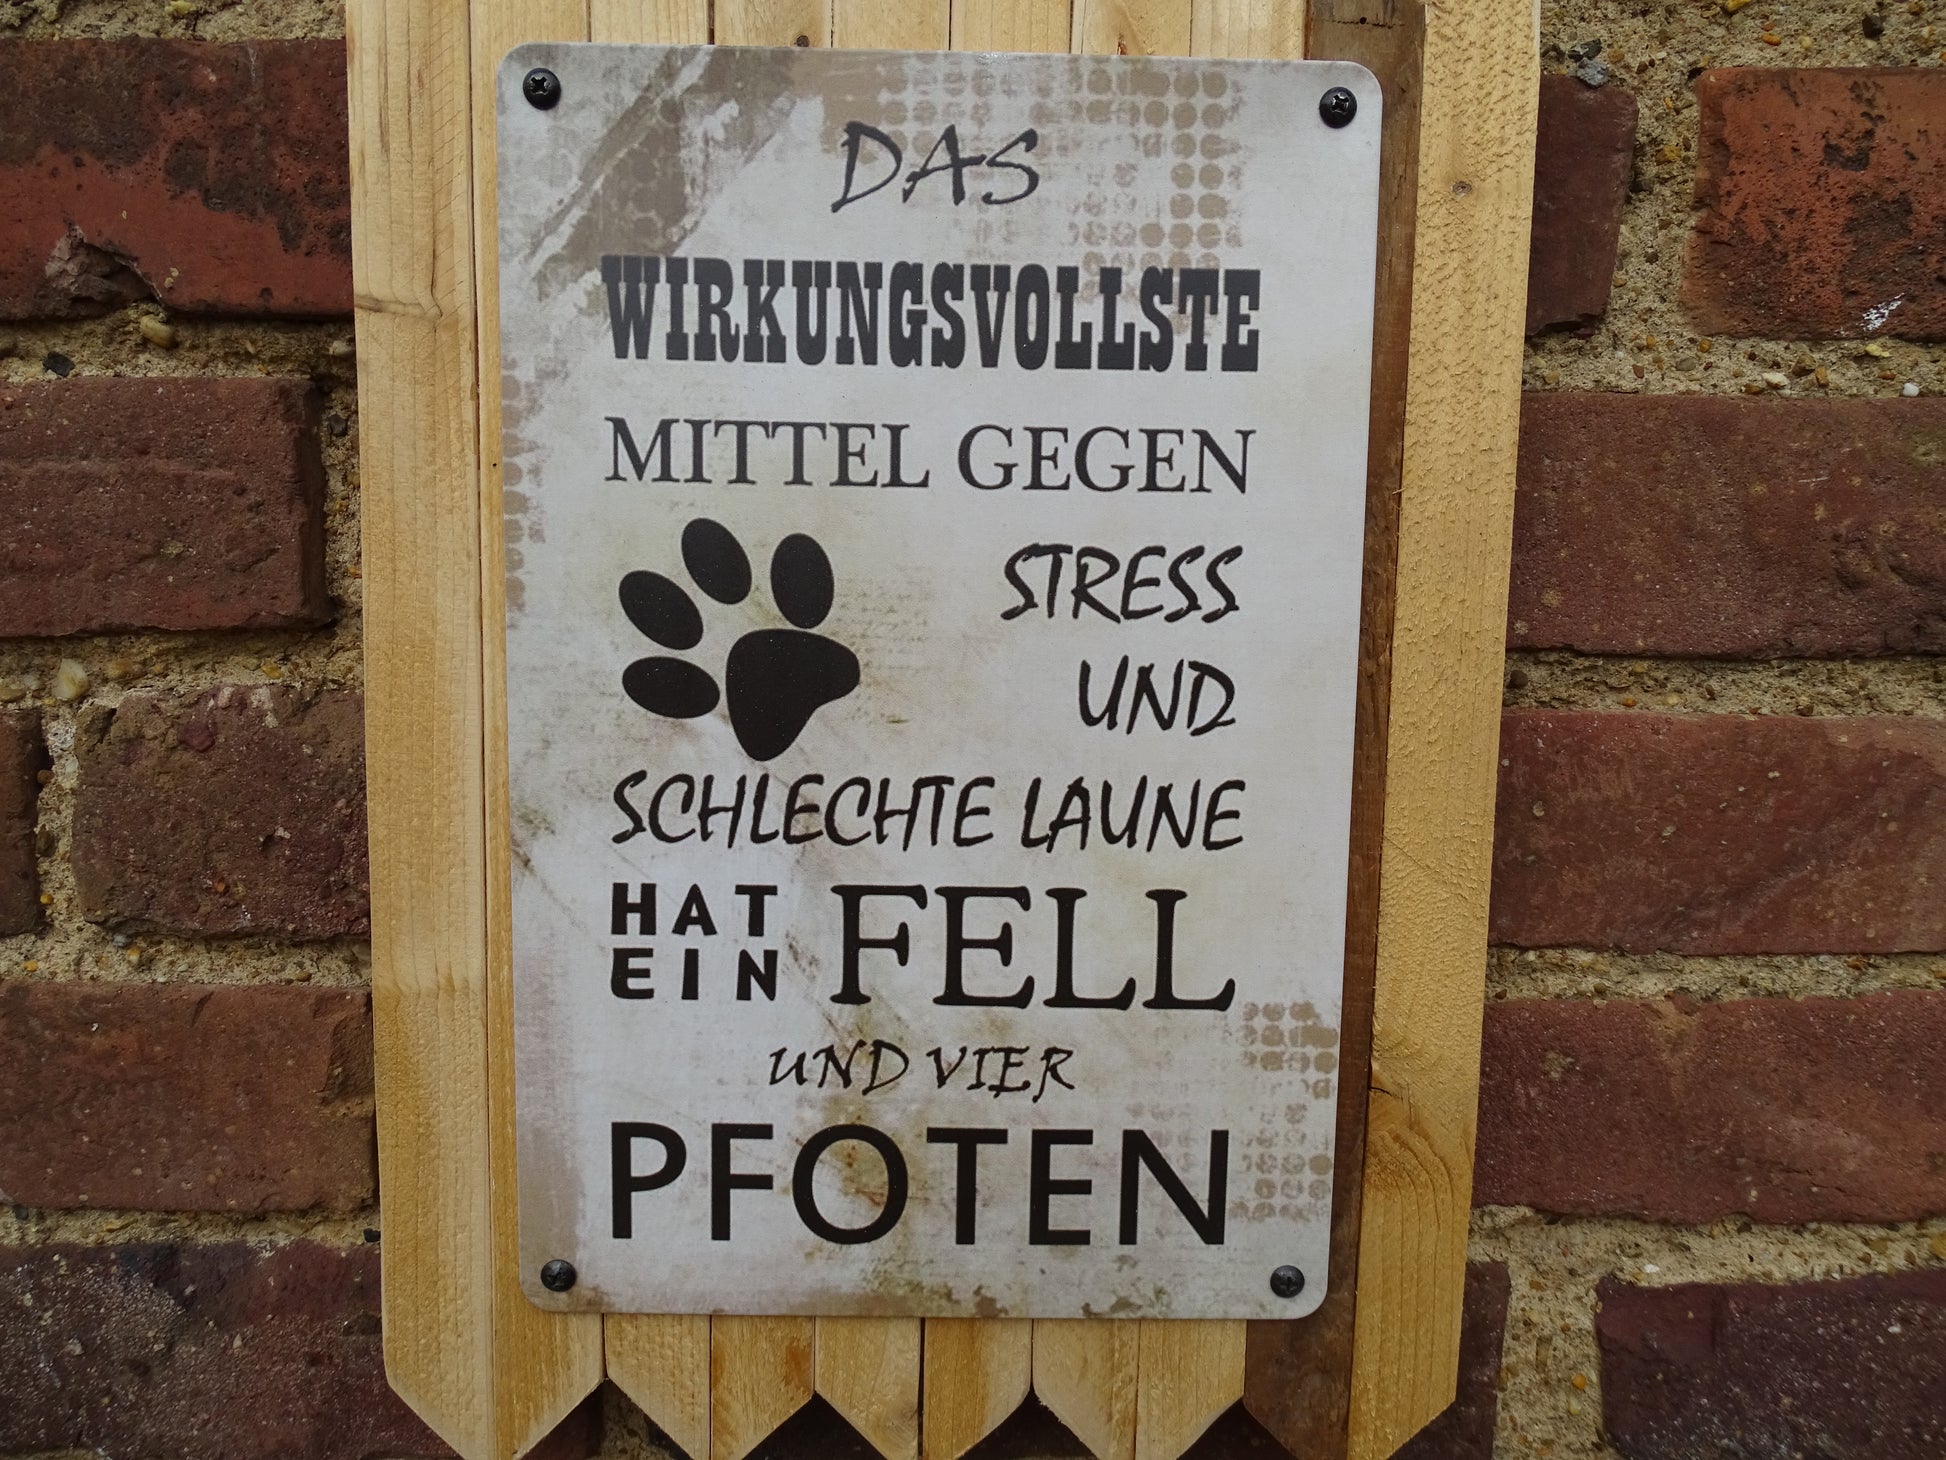 DAS
WIRKUNGSVOLLSTE
MITTEL GEGEN
STRESS
UND
SCHLECHTE LAUNE
HAT
EIN
FELL
UND VIER
PFOTEN